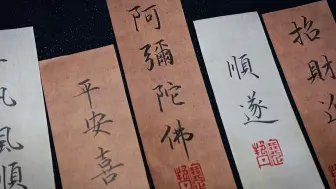 風順
平安喜
阿彌陀佛
順遂
招財